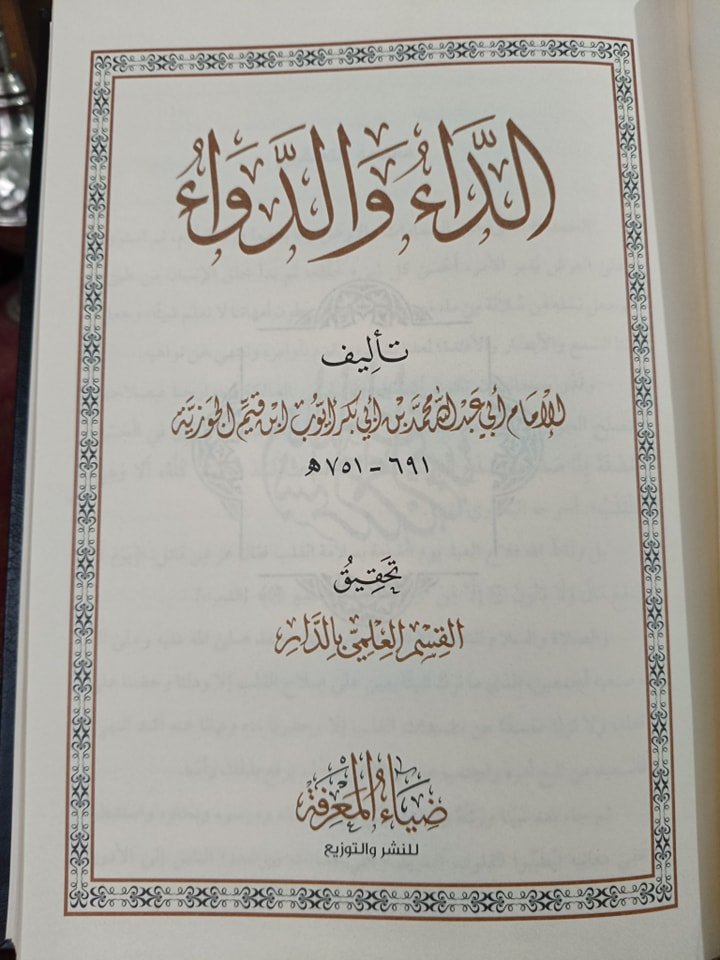 الدَّاءُ وَالدَّوَاءُ
تأليف
الإمام أبي عبد الله محمد بن أبي بكر أيوب ابن قيم الجوزية
٦٩١ - ٧٥١ هـ
تحقيق
القسم العلمي بالدار
ضياء المعرفة
للنشر والتوزيع